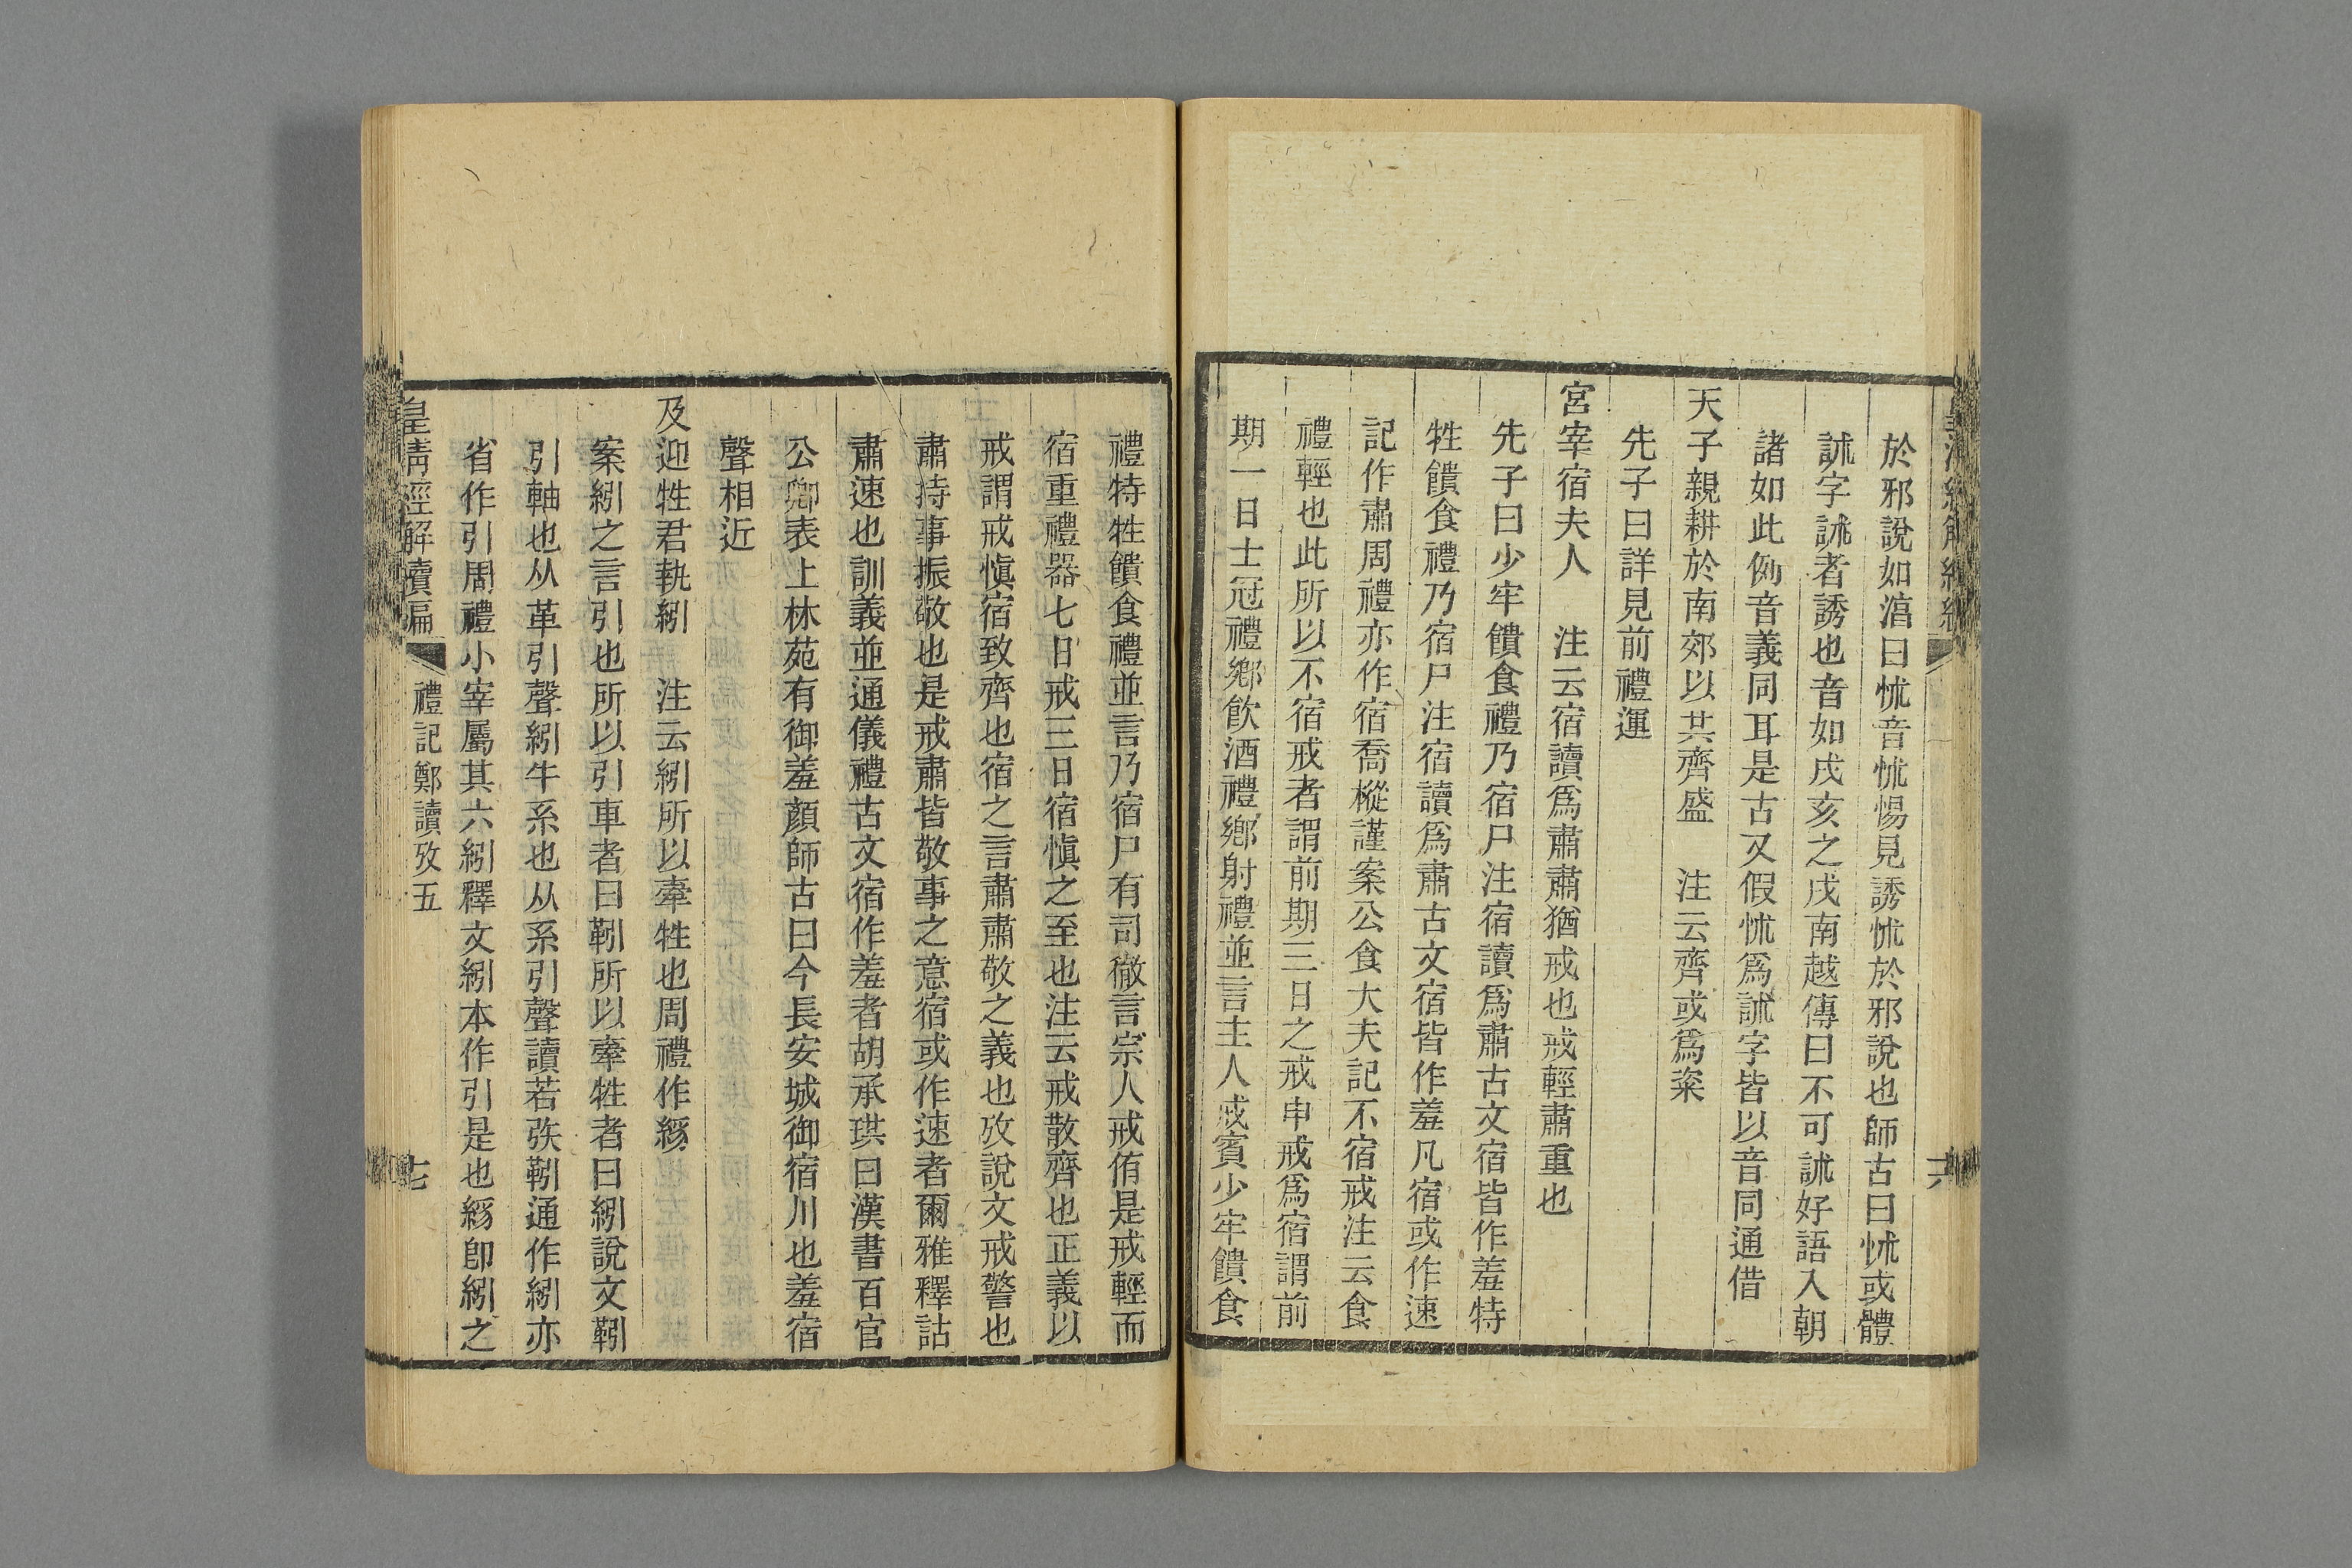 於邪說如淳曰怵音怵惕見誘怵於邪說也師古曰怵或體
訹字訹者誘也音如戌亥之戌南越傳曰不可訹好語入朝
諸如此例音義同耳是古又假怵爲訹字皆以音同通借
天子親耕於南郊以共齊盛　注云齊或爲粢
先子曰詳見前禮運
宮宰宿夫人　注云宿讀爲肅肅猶戒也戒輕肅重也
先子曰少牢饋食禮乃宿尸注宿讀爲肅古文宿皆作羞特
牲饋食禮乃宿尸注宿讀爲肅古文宿皆作羞凡宿或作速
記作肅周禮亦作宿喬樅謹案公食大夫記不宿戒注云食
禮輕也此所以不宿戒者謂前期三日之戒申戒爲宿謂前
期一日士冠禮鄉飲酒禮鄉射禮並言主人戒賓少牢饋食
禮特牲饋食禮並言乃宿尸有司徹言宗人戒侑是戒輕而
宿重禮器七日戒三日宿愼之至也注云戒散齊也正義以
戒謂戒愼宿致齊也宿之言肅肅敬之義也攷說文戒警也
肅持事振敬也是戒肅皆敬事之意宿或作速者爾雅釋詁
肅速也訓義並通儀禮古文宿作羞者胡承珙曰漢書百官
公卿表上林苑有御羞顏師古曰今長安城御宿川也羞宿
聲相近
及迎牲君執紖　注云紖所以牽牲也周禮作絼
案紖之言引也所以引車者曰靷所以牽牲者曰紖說文靷
引軸也从革引聲紖牛系也从系引聲讀若矤靷通作紖亦
省作引周禮小宰屬其六紖釋文紖本作引是也絼卽紖之
皇清經解續編　禮記鄭讀攷五　七